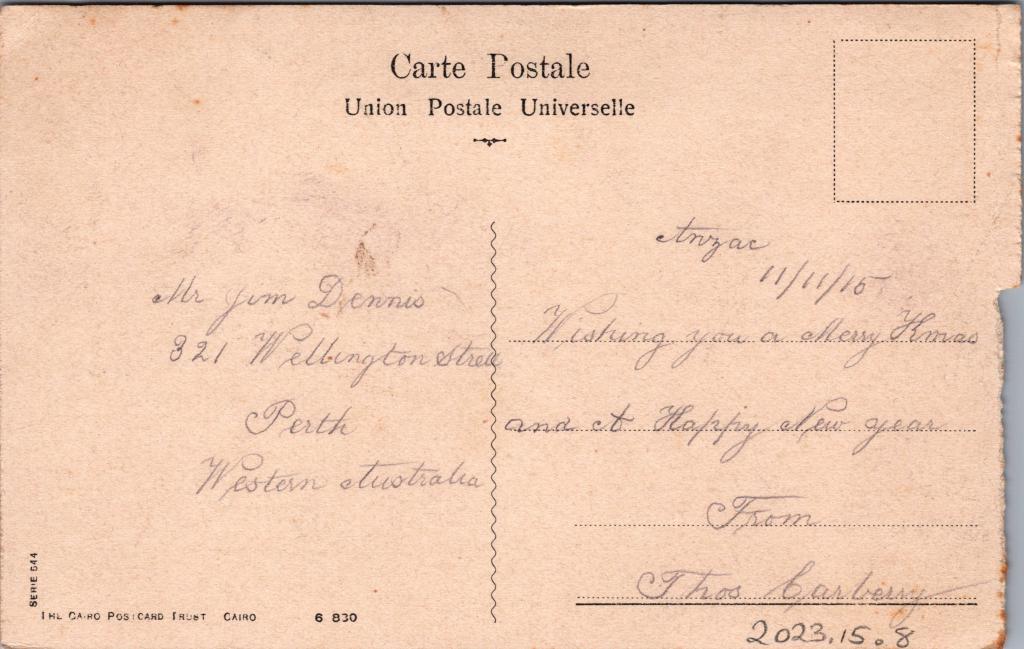 Carte Postale
Union Postale Universelle
Anzac
11/11/15
Mr Jim Dennis
321 Wellington Street
Perth
Western Australia
Wishing you a Merry Xmas
and A Happy New year
From
Thos Carberry
SERIE 644
THE CAIRO POSTCARD TRUST CAIRO 6 830
2023.15.8